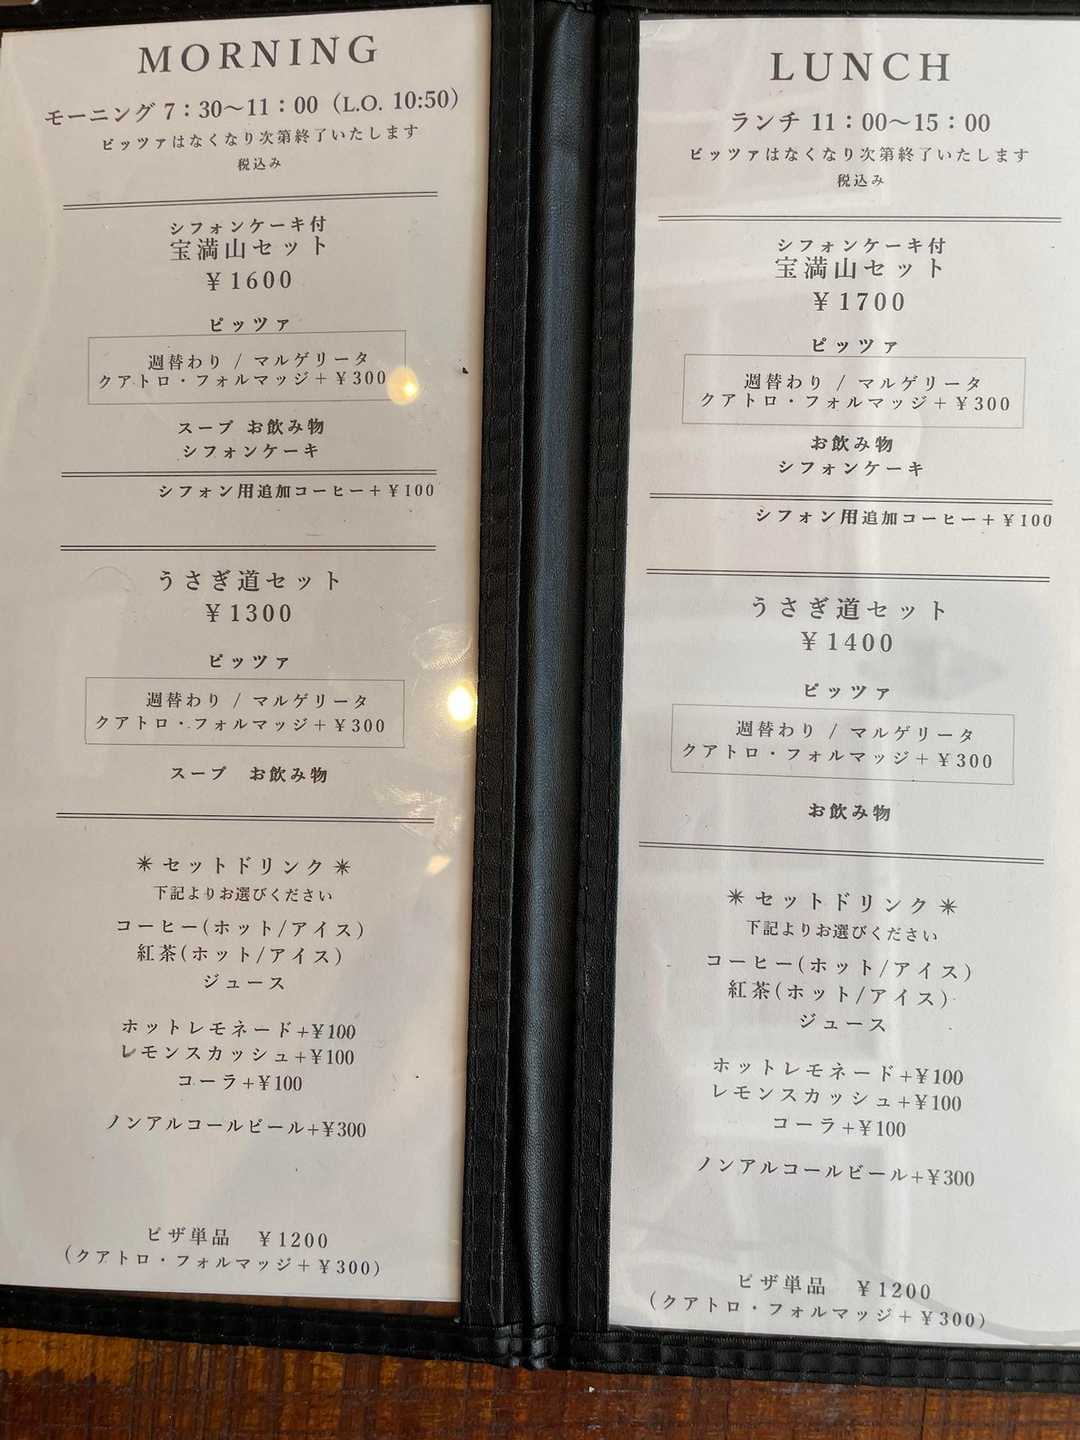 MORNING
モーニング 7：30〜11：00（L.O. 10:50）
ピッツァはなくなり次第終了いたします
税込み
シフォンケーキ付
宝満山セット
￥1600
ピッツァ
週替わり / マルゲリータ
クアトロ・フォルマッジ＋￥300
スープ お飲み物
シフォンケーキ
シフォン用追加コーヒー＋￥100
うさぎ道セット
￥1300
ピッツァ
週替わり / マルゲリータ
クアトロ・フォルマッジ＋￥300
スープ お飲み物
✳ セットドリンク ✳
下記よりお選びください
コーヒー(ホット/アイス)
紅茶(ホット/アイス)
ジュース
ホットレモネード+¥100
レモンスカッシュ+¥100
コーラ+¥100
ノンアルコールビール+¥300
ピザ単品 ￥1200
(クアトロ・フォルマッジ＋￥300)
LUNCH
ランチ 11：00〜15：00
ピッツァはなくなり次第終了いたします
税込み
シフォンケーキ付
宝満山セット
￥1700
ピッツァ
週替わり / マルゲリータ
クアトロ・フォルマッジ＋￥300
お飲み物
シフォンケーキ
シフォン用追加コーヒー＋￥100
うさぎ道セット
￥1400
ピッツァ
週替わり / マルゲリータ
クアトロ・フォルマッジ＋￥300
お飲み物
✳ セットドリンク ✳
下記よりお選びください
コーヒー(ホット/アイス)
紅茶(ホット/アイス)
ジュース
ホットレモネード+¥100
レモンスカッシュ+¥100
コーラ+¥100
ノンアルコールビール+¥300
ピザ単品 ￥1200
(クアトロ・フォルマッジ＋￥300)